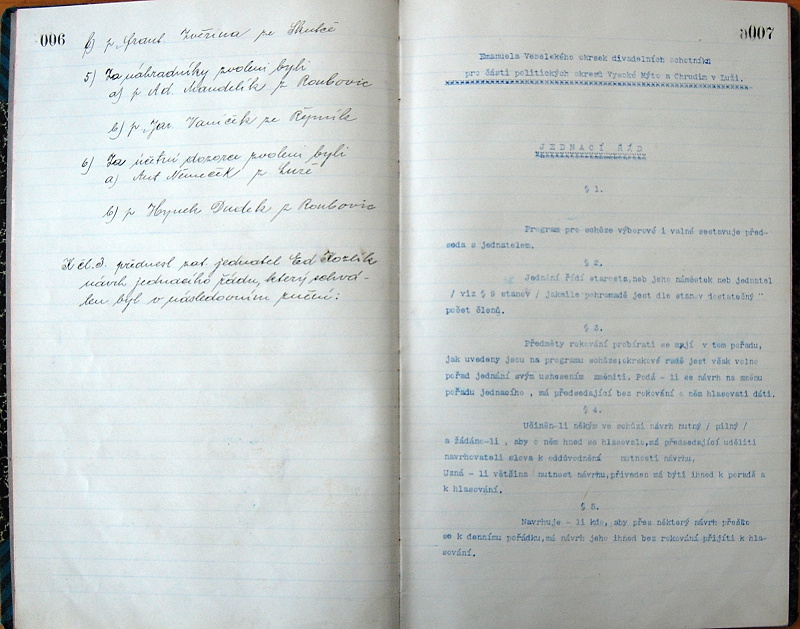 006
b) p. Frant. Zvěřina ze Skutče
5) Za náhradníky zvoleni byli
a) p Ad. Mandelík z Roubovic
b) p. Jar. Vaníček ze Řepník
6) Za účetní dozorce zvoleni byli
a) Ant Němeček z Luže
b) p Hynek Dudek z Roubovic
K čl. 3. přednesl zat. jednatel Ed Kozlík
návrh jednacího řádu, který schvá-
len byl v následovním znění:
007
Emanuela Veselského okrsek divadelních ochotníků
pro části politických okresů Vysoké Mýto a Chrudim v Luži.
JEDNACÍ ŘÁD
§ 1.
Program pro schůze výborové i valné sestavuje před-
seda s jednatelem.
§ 2.
Jednání řídí starosta, neb jeho náměstek neb jednatel
/ viz § 9 stanov / jakmile pohromadě jest dle stanov dostatečný
počet členů.
§ 3.
Předměty rokování probírati se mají v tom pořadu,
jak uvedeny jsou na programu schůze;okrskové radě jest však volno
pořad jednání svým usnesením změniti. Podá - li se návrh na změnu
pořadu jednacího , má předsedající bez rokování o něm hlasovati dáti.
§ 4.
Učiněn-li někým ve schůzi návrh nutný / pilný /
a žádáno-li , aby o něm hned se hlasovalo,má předsedající uděliti
navrhovateli slova k oddůvodnění nutnosti návrhu.
Uzná - li většina nutnost návrhu,přiveden má býti ihned k poradě a
k hlasování.
§ 5.
Navrhuje - li kdo, aby přes některý návrh přešlo
se k dennímu pořádku,má návrh jeho ihned bez rokování přijíti k hla-
sování.